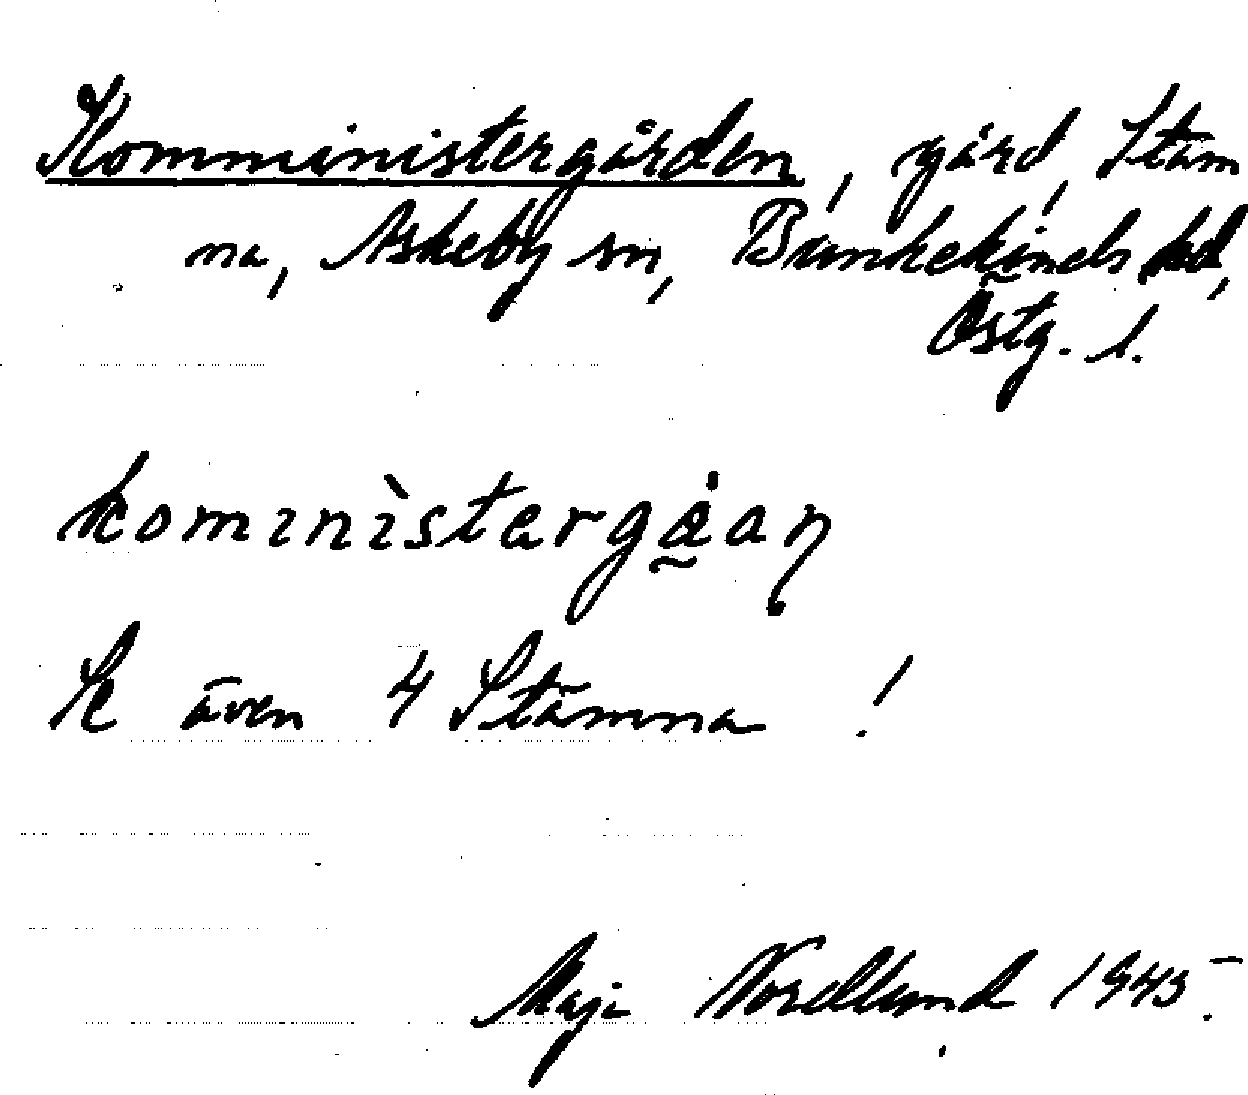 Komministergården, gård, Stäm
na, Askeby sn, Bankekinds hd,
Östg. l.
kominìstergåan
Se även 4 Stämna !
Maja Nordlund 1945.